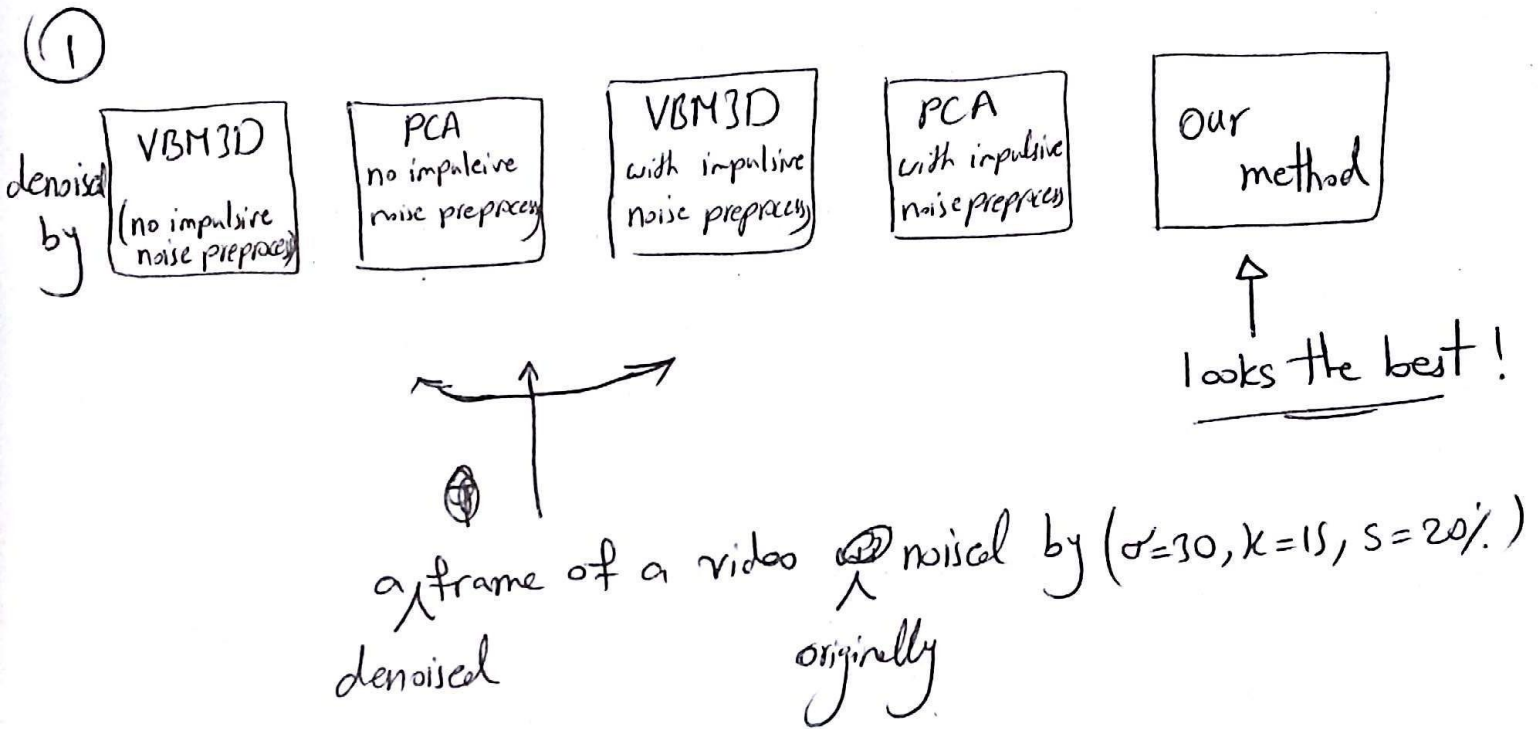 1
denoised by
VBM3D
(no impulsive
noise preprocess)
PCA
no impulsive
noise preprocess
VBM3D
with impulsive
noise preprocess
PCA
with impulsive
noise preprocess
our
method
looks the best!
a denoised frame of a video originally noised by (σ=30, K=15, S=20%)